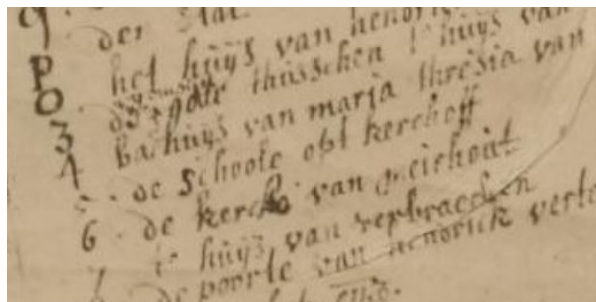 9 . der
P het huijs van hendri
O gote thusschen t' huijs van
3 bachuijs van marja thresia van
4 de schoole opt kerchoff
5 . de kercke van meiehout
6 . t' huijs van verbraecken
7 de poorte van hendrick verto